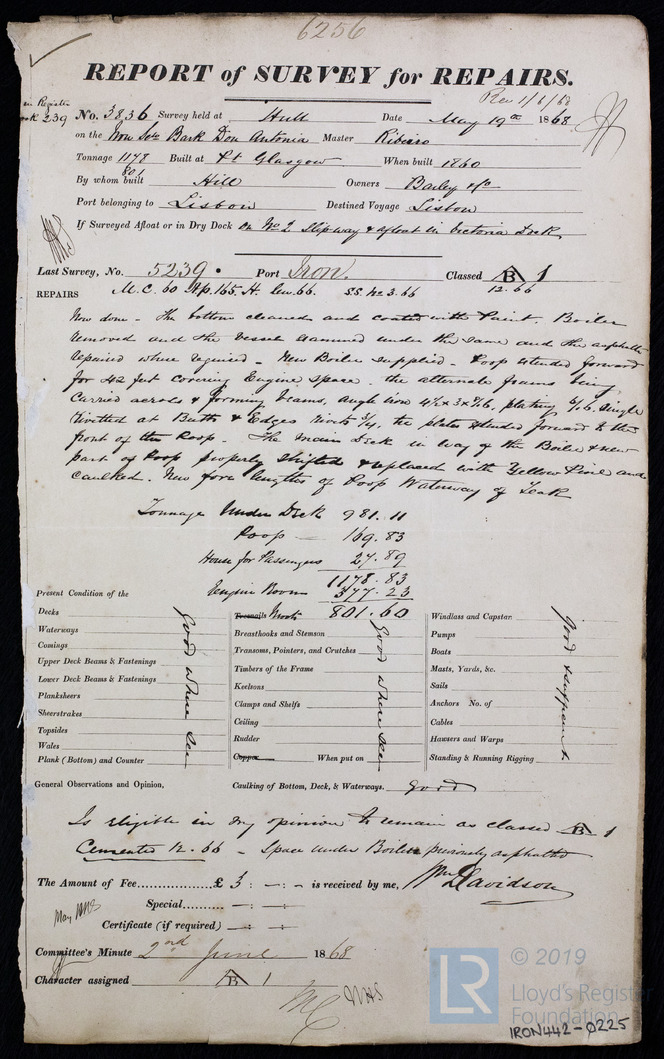 6256
REPORT of SURVEY for REPAIRS.
Rec 1/6/68
in Register
239 No. 3836 Survey held at Hull Date May 19th 1868
on the Iron Bark Don Antonia Master Ribeiro
Tonnage 1178 Built at Pt Glasgow When built 1860
801
By whom built Hill Owners Bailey & Co
Port belonging to Lisbon Destined Voyage Lisbon
If Surveyed Afloat or in Dry Dock On No 2 Slipway & afloat in Victoria Dock
Last Survey, No. 5239 Port Iron Classed B 1
REPAIRS M.C. 60 Ap. 165. H. 66. S.S. No 3. 66 12.66
Now done - The bottom cleaned and coated with Paint. Boiler
removed and the vessel examined under the same and the asphalte
repaired where required - New Boiler supplied - Poop extended forward
for 42 feet covering Engine space - the alternate frames being
carried across & forming beams, angle iron 4½ x 3 x 7/16, plating 6/16 single
rivetted at Butts & Edges rivets 3/4, the plates extended forward to the
front of the Poop. The main Deck in way of the Boiler & new
part of Poop properly shifted & replaced with Yellow Pine and
caulked. New fore lengths of Poop Waterway of Teak
Tonnage Under Deck 981.11
Poop 169.83
House for Passengers 27.89
1178.83
Engine Room 377.23
801.60
Present Condition of the
Decks
Waterways
Comings
Upper Deck Beams & Fastenings
Lower Deck Beams & Fastenings
Planksheers
Sheerstrakes
Topsides
Wales
Plank (Bottom) and Counter
Good where seen
Treenails Rivets
Breasthooks and Stemson
Transoms, Pointers, and Crutches
Timbers of the Frame
Keelsons
Clamps and Shelfs
Ceiling
Rudder
Copper When put on
Good where seen
Windlass and Capstan
Pumps
Boats
Masts, Yards, &c.
Sails
Anchors No. of
Cables
Hawsers and Warps
Standing & Running Rigging
Good & sufficient
General Observations and Opinion, Caulking of Bottom, Deck, & Waterways. Good
Is eligible in my opinion to remain as classed B 1
Cemented 12.66 - Space under Boilers previously asphalted
The Amount of Fee £ 3 : - : - is received by me, Wm Davidson
Special - : -
Certificate (if required) - : -
Committee's Minute 2nd June 1868
Character assigned B 1
LR © 2019
Lloyd's Register
Foundation
IRON442-0225